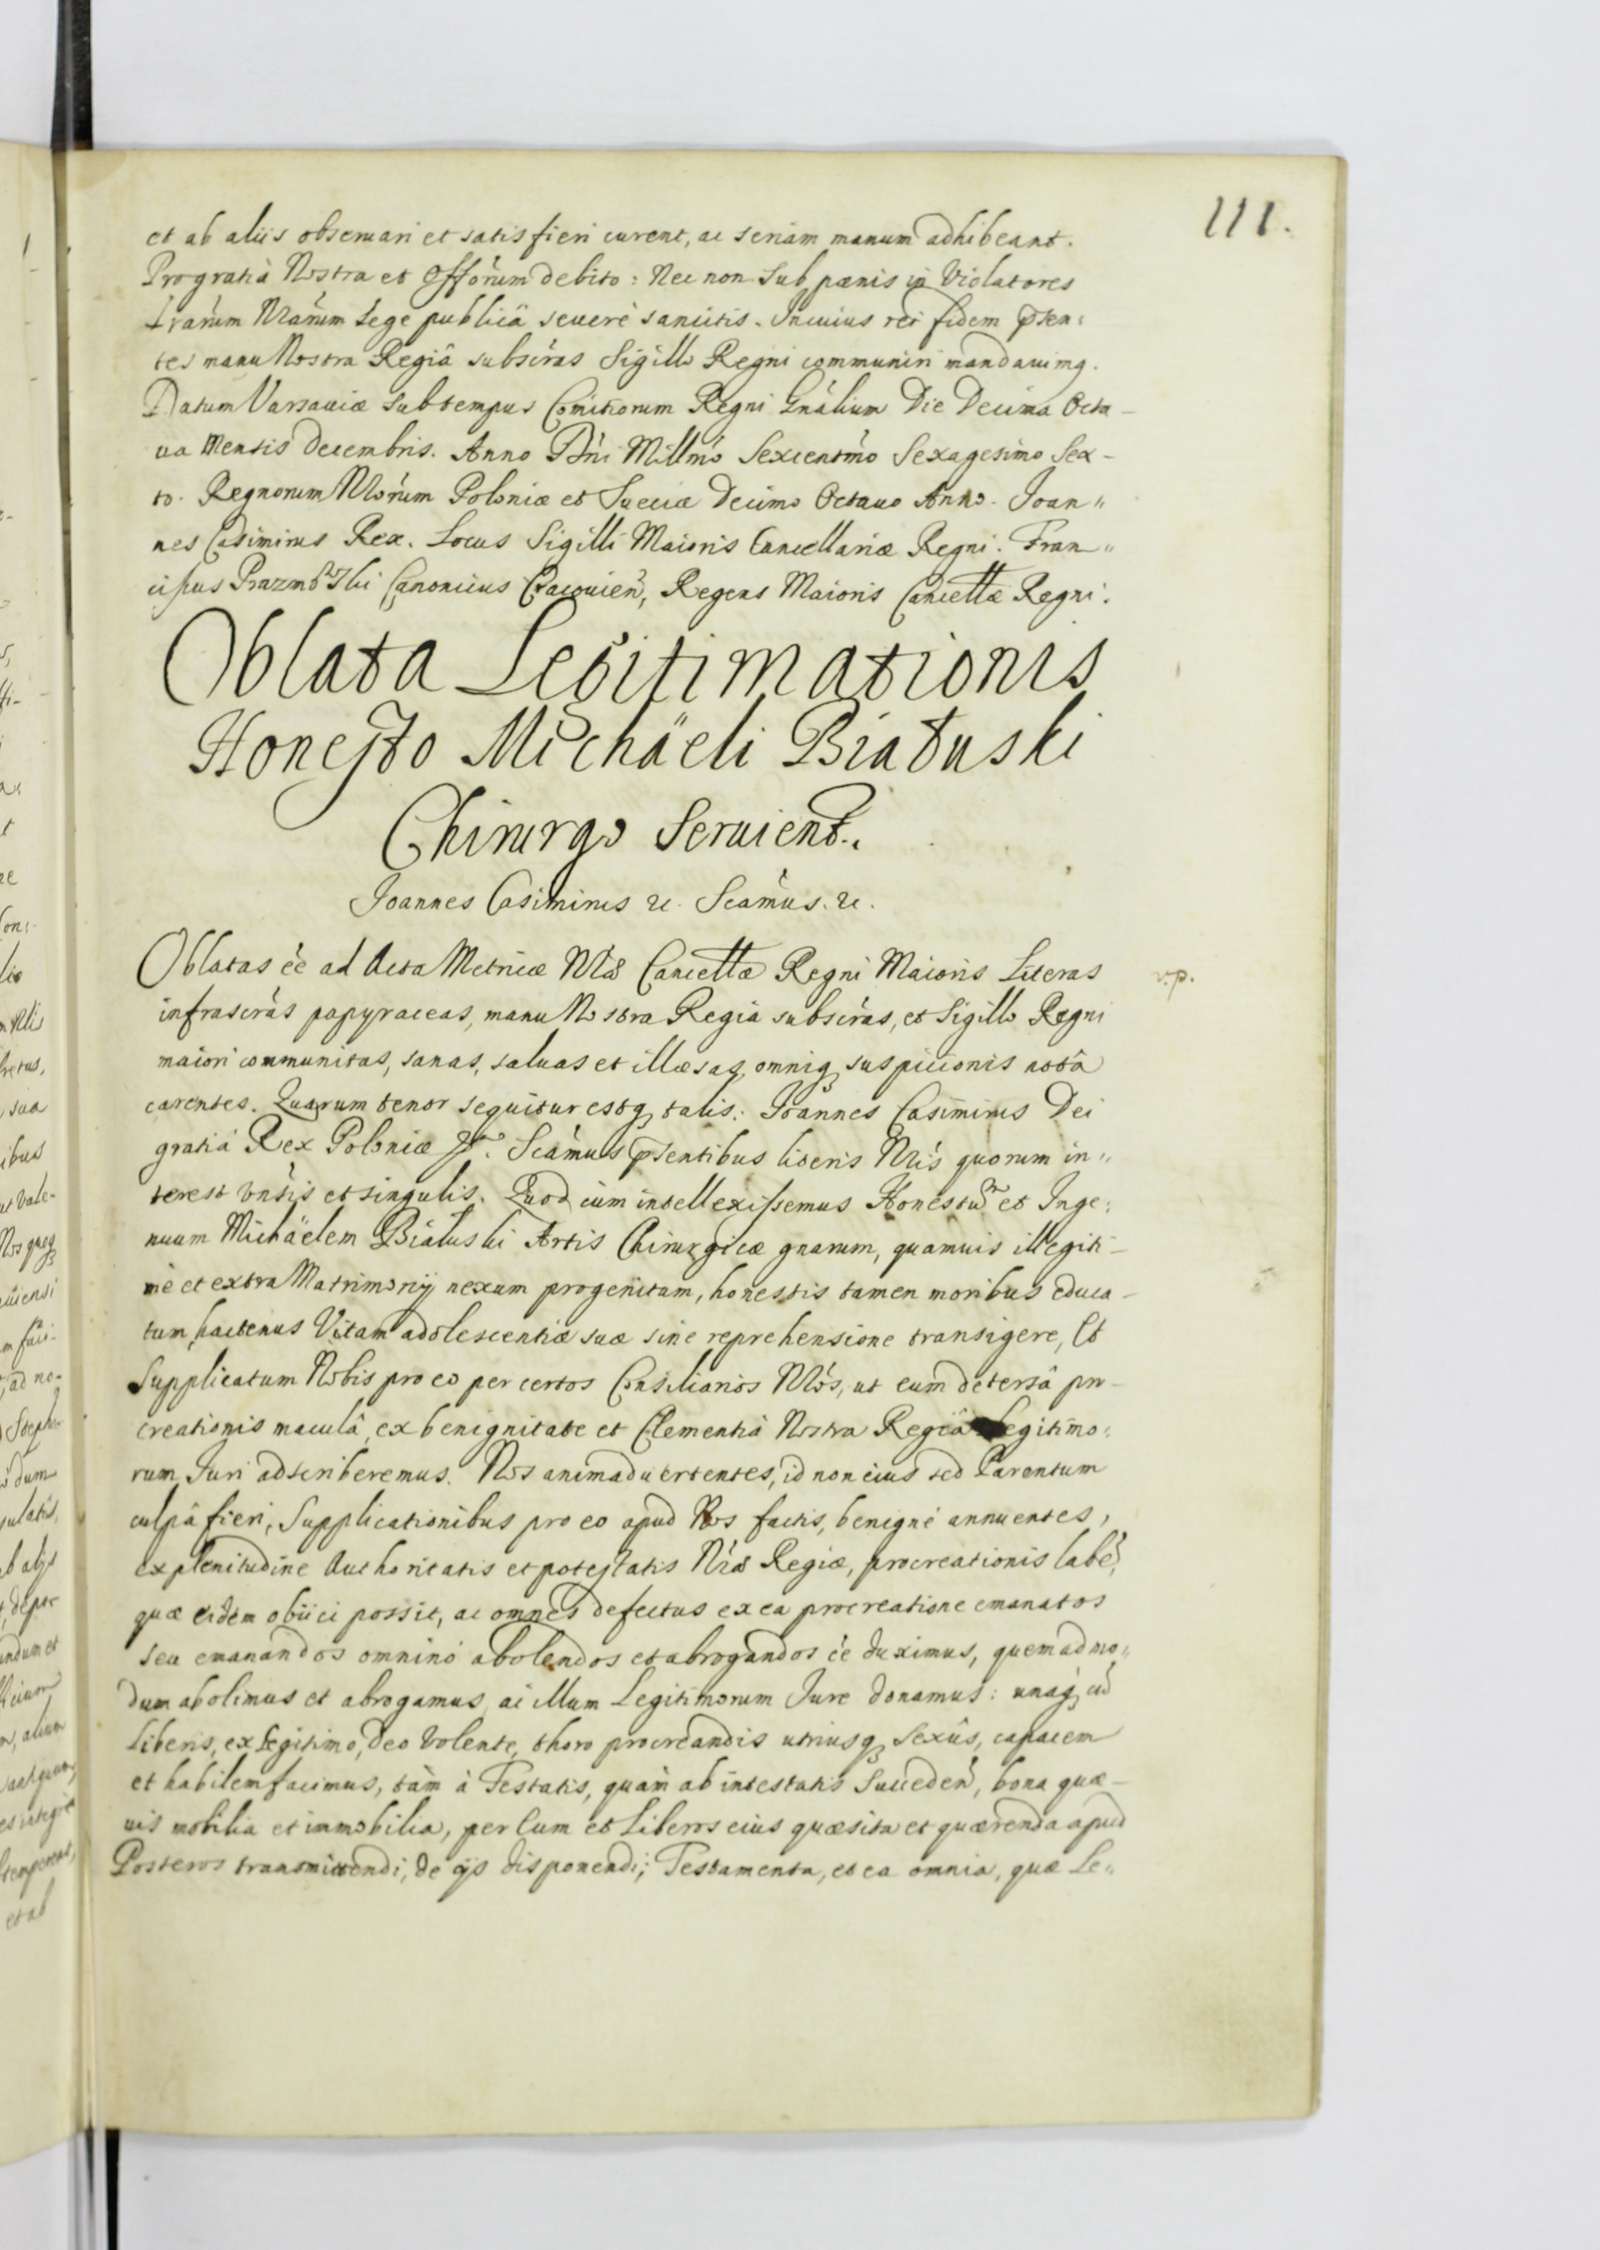 111.
et ab aliis obseruari et satisfieri curent, ac seriam manum adhibeant.
Pro gratia Nostra et Offõrum debito: Nec non sub pænis in Violatores
Lrarum Nrarum Lege publicâ seuerè sancitis. In cuius rei fidem pñsen:
tes manu Nostra Regiâ subscras Sigillo Regni communiri mandauimq.
Datum Varsauiæ sub tempus Comitiorum Regni Gnalium Die Decima Octa-
ua Mensis Decembris. Anno Dni Millmo Sexcentmo Sexagesimo Sex-
to. Regnorum Nrorum Poloniæ et Sueciæ Decimo Octauo Anno. Joan"
nes Casimirus Rex. Locus Sigilli Maioris Cancellariæ Regni. Fran"
ciscus Prazmowski Canonicus Cracouien, Regens Maioris Cancellæ Regni.
Oblata Legitimationis
Honesto Michäeli Białuski
Chirurgo Seruient.
Joannes Casimirus &c. Scamus. &c.
Oblatas eé ad Acta Metricæ Nræ Cancellæ Regni Maioris Literas
v.p.
infrascras papyraceas, manu Nostra Regia subscras, et Sigillo Regni
maiori communitas, sanas, saluas et illæsas, omniq suspicionis notâ
carentes. Quarum tenor sequitur estq talis: Joannes Casimirus Dei
gratiâ Rex Poloniæ &c. Scamus pñsentibus literis Nris quorum in"
terest vnsis et singulis. Quod cùm intellexissemus Honestũ et Inge:
nuum Michäelem Białuski Artis Chirurgicæ gnarum, quamuis illegiti-
mè et extra Matrimonij nexum progenitum, honestis tamen moribus educa-
tum, hactenus Vitam adolescentiæ suæ sine reprehensione transigere, Et
Supplicatum Nobis pro eo per certos Consiliarios Nros, ut eum detersâ pro-
creationis maculâ, ex benignitate et Clementiâ Nostra Regiâ Legitimo:
rum Juri adscriberemus. Nos animaduertentes, id non eius sed Parentum
culpâ fieri, Supplicationibus pro eo apud Nos factis, benignè annuentes,
ex plenitudine Authoritatis et potestatis Nræ Regiæ, procreationis labé,
quæ eidem obijci possit, ac omnes defectus ex ea procreatione emanatos
seu emanandos omninò abolendos et abrogandos eé duximus, quemadmo"
dum abolimus et abrogamus, ac illum Legitimorum Jure donamus: unaq cũ
Liberis, ex Legitimo, Deo volente, thoro procreandis utriusq Sexûs, capacem
et habilem facimus, tàm à Testatis, quàm ab intestatis succeden, bona quæ-
uis mobilia et immobilia, per Eum et Liberos eius quæsita et quærenda apud
Posteros transmittendi, de ijs disponendi, Testamenta, et ea omnia, quæ Le"